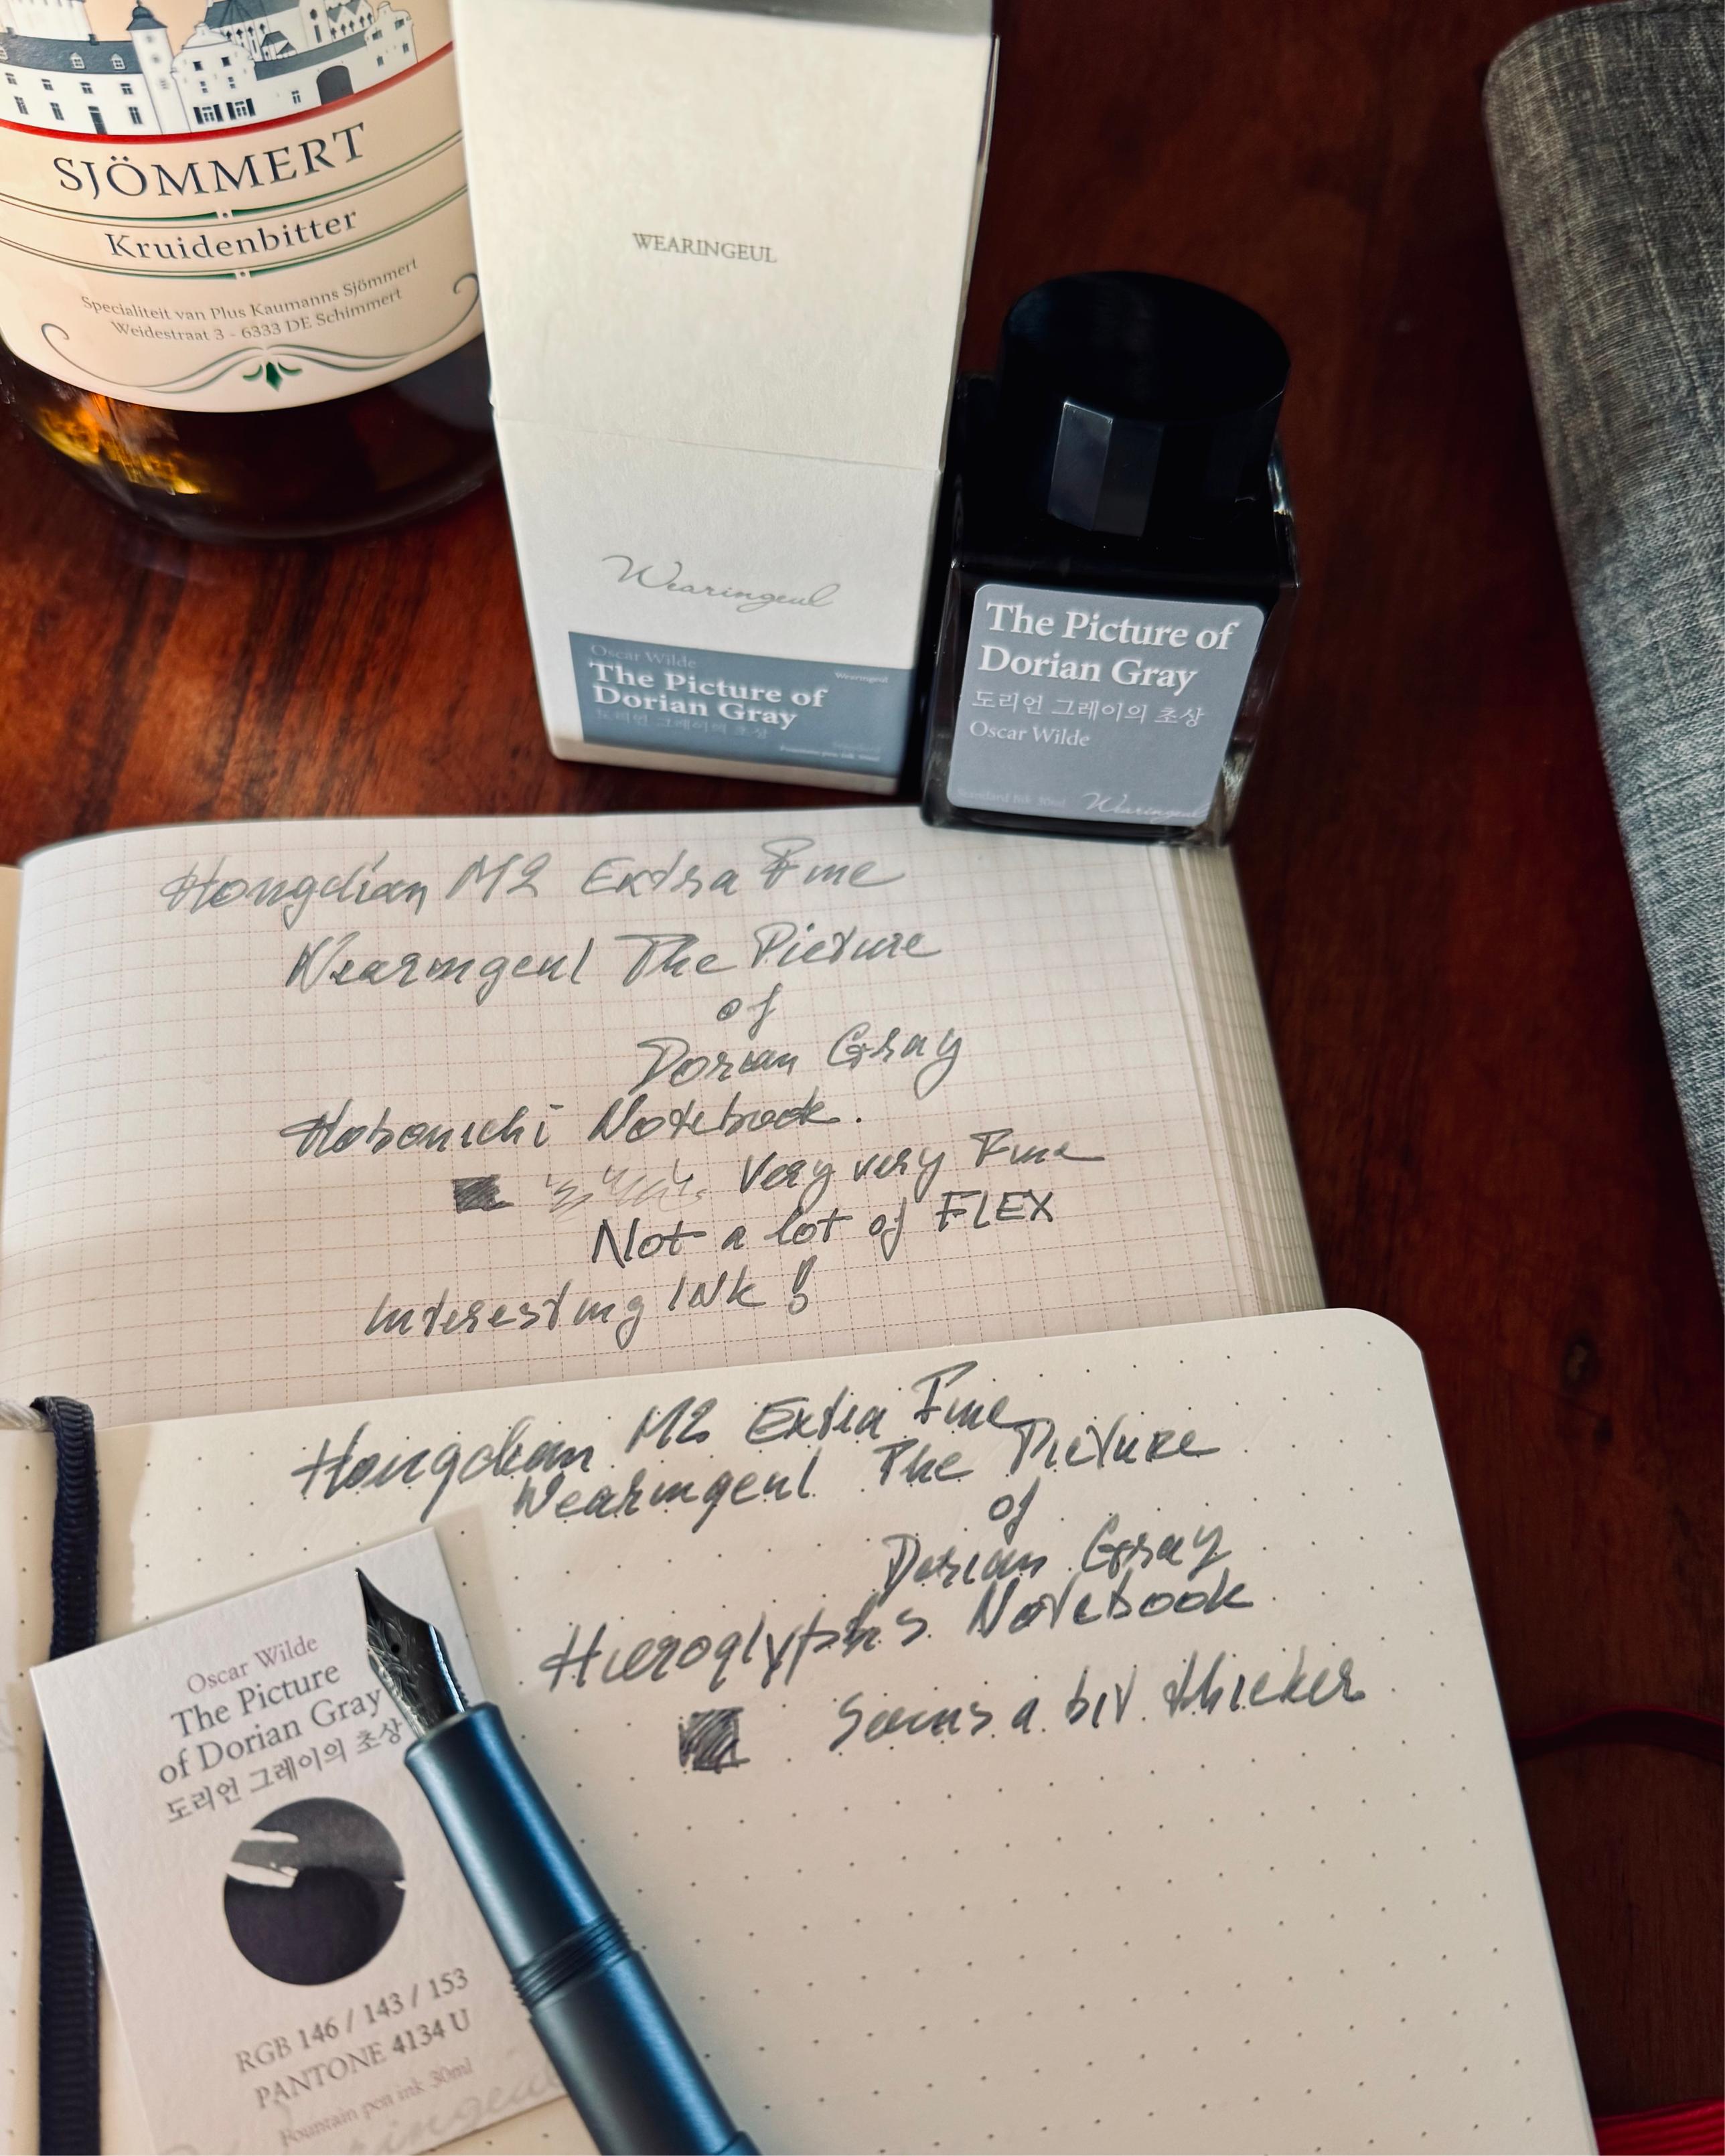 SJÖMMERT
Kruidenbitter
Specialiteit van Plus Kaumanns Sjömmert
Weidestraat 3 - 6333 DE Schimmert
WEARINGEUL
Wearingeul
Oscar Wilde
Wearingeul
The Picture of
Dorian Gray
도리언 그레이의 초상
Fountain pen ink 30ml
The Picture of
Dorian Gray
도리언 그레이의 초상
Oscar Wilde
Standard Ink 30ml Wearingeul
Hongdian M2 Extra Fine
Wearingeul The Picture
of
Dorian Gray
Hobonichi Notebook.
Very very Fine
Not a lot of FLEX
Interesting INk !
Hongdian M2 Extra Fine
Wearingeul The Picture
of
Dorian Gray
Hieroglyphs Notebook
Seems a bit thicker
Oscar Wilde
The Picture
of Dorian Gray
도리언 그레이의 초상
RGB 146 / 143 / 153
PANTONE 4134 U
Fountain pen ink 30ml